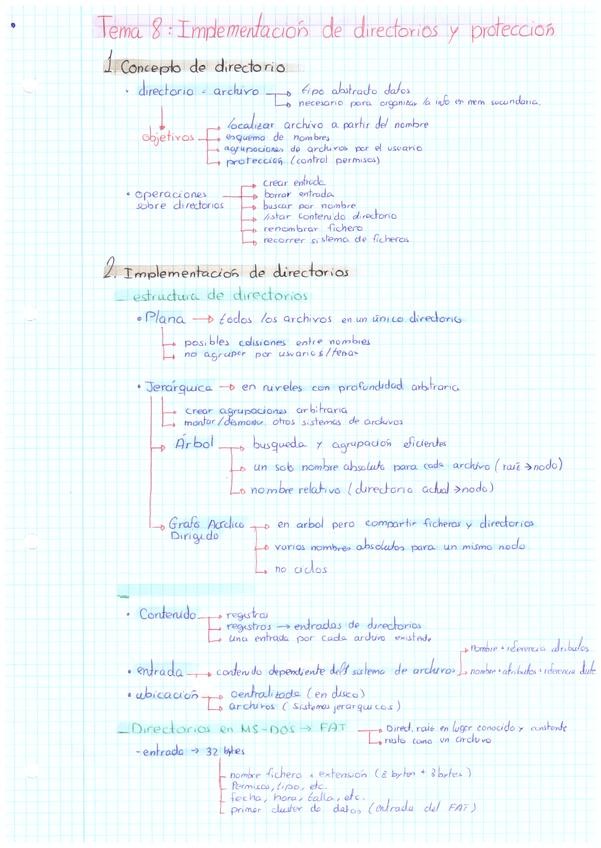 Tema 8: Implementación de directorios y protección
1. Concepto de directorio
• directorio = archivo → tipo abstracto datos
→ necesario para organizar la info en mem secundaria.
objetivos → localizar archivo a partir del nombre
→ esquema de nombres
→ agrupaciones de archivos por el usuario
→ protección (control permisos)
• operaciones sobre directorios → crear entrada
→ borrar entrada
→ buscar por nombre
→ listar contenido directorio
→ renombrar fichero
→ recorrer sistema de ficheros
2. Implementación de directorios
_ estructura de directorios
• Plana → todos los archivos en un único directorio
→ posibles colisiones entre nombres
→ no agrupar por usuarios/temas
• Jerárquica → en niveles con profundidad arbitraria
→ crear agrupaciones arbitraria
→ montar/desmontar otros sistemas de archivos
→ Árbol → busqueda y agrupación eficientes
→ un solo nombre absoluto para cada archivo (raíz → nodo)
→ nombre relativo (directorio actual → nodo)
→ Grafo Acíclico Dirigido → en arbol pero compartir ficheros y directorios
→ varios nombres absolutos para un mismo nodo
→ no ciclos
• Contenido → registros
→ registros → entradas de directorios
→ una entrada por cada archivo existente
• entrada → contenido dependiente del sistema de archivos → nombre + referencia atributos
→ nombre + atributos + referencia
• ubicación → centralizada (en disco)
→ archivos (sistemas jerarquicos)
_ Directorios en MS-DOS → FAT → Direct. raíz en lugar conocido y constante
→ resto como un archivo
- entrada → 32 bytes
nombre fichero + extensión (8 bytes + 3 bytes)
Permisos, tipo, etc.
fecha, hora, talla, etc.
primer cluster de datos (entrada del FAT)